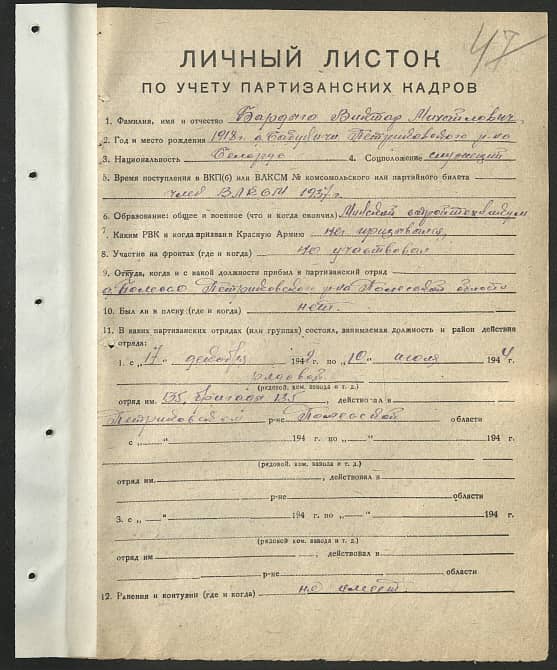 47
ЛИЧНЫЙ ЛИСТОК
ПО УЧЕТУ ПАРТИЗАНСКИХ КАДРОВ
1. Фамилия, имя и отчество Бардаго Виктар Михайлович
2. Год и место рождения 1918 г. д. Бабуничи Петриковского р-на
3. Национальность Белорус 4. Соцположение служащий
5. Время поступления в ВКП(б) или ВЛКСМ № комсомольского или партийного билета
член ВЛКСМ 1937 г.
6. Образование: общее и военное (что и когда окончил) Минский стройтехникум
7. Каким РВК и когда призван в Красную Армию не призывался
8. Участие на фронтах (где и когда) не участвовал
9. Откуда, когда и с какой должности прибыл в партизанский отряд
Петриковского р-на Полесской области
10. Был ли в плену (где и когда) нет.
11. В каких партизанских отрядах (или группах) состоял, занимаемая должность и район действия
отряда:
1. с „17" декабря 1942 г. по „10" июля 1944 г.
рядовой
(рядовой, ком. взвода и т. д.)
отряд им. 135, бригада 135, действовал в
Петриковском р-не Полесской области
с „ " 194 г. по „ " 194 г.
(рядовой, ком. взвода и т. д.)
отряд им. , действовал в
р-не области
3. с „ " 194 г. по „ " 194 г.
(рядовой, ком. взвода и т. д.)
отряд им , действовал в
р-не области
12. Ранения и контузии (где и когда) не имеет.